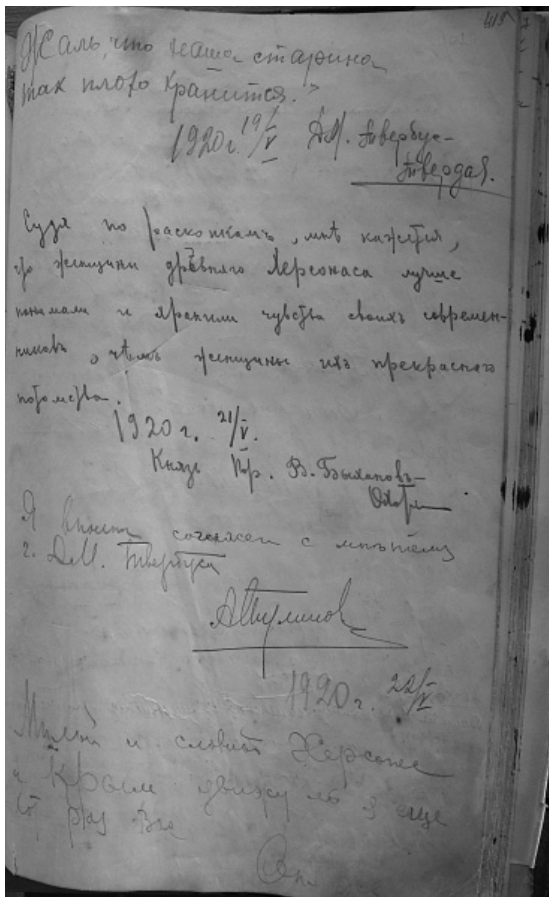 Жаль, что наша старина
так плохо хранится."
1920 г. 19/V Д.М. Твербус-
Твердая.
Судя по раскопкамъ, мнѣ кажется,
что женщины древняго Херсонаса лучше
понимали и хранили чувства своихъ современ-
никовъ, чѣмъ женщины ихъ прекраснаго
потомства.
1920 г. 21/V.
Князь Пор. В.
Я вполне согласен с мнѣнiемъ
г. Д.М. Твербуса
1920 г. 22/V
Милый и славный Херсонес
и Крым еще
раз